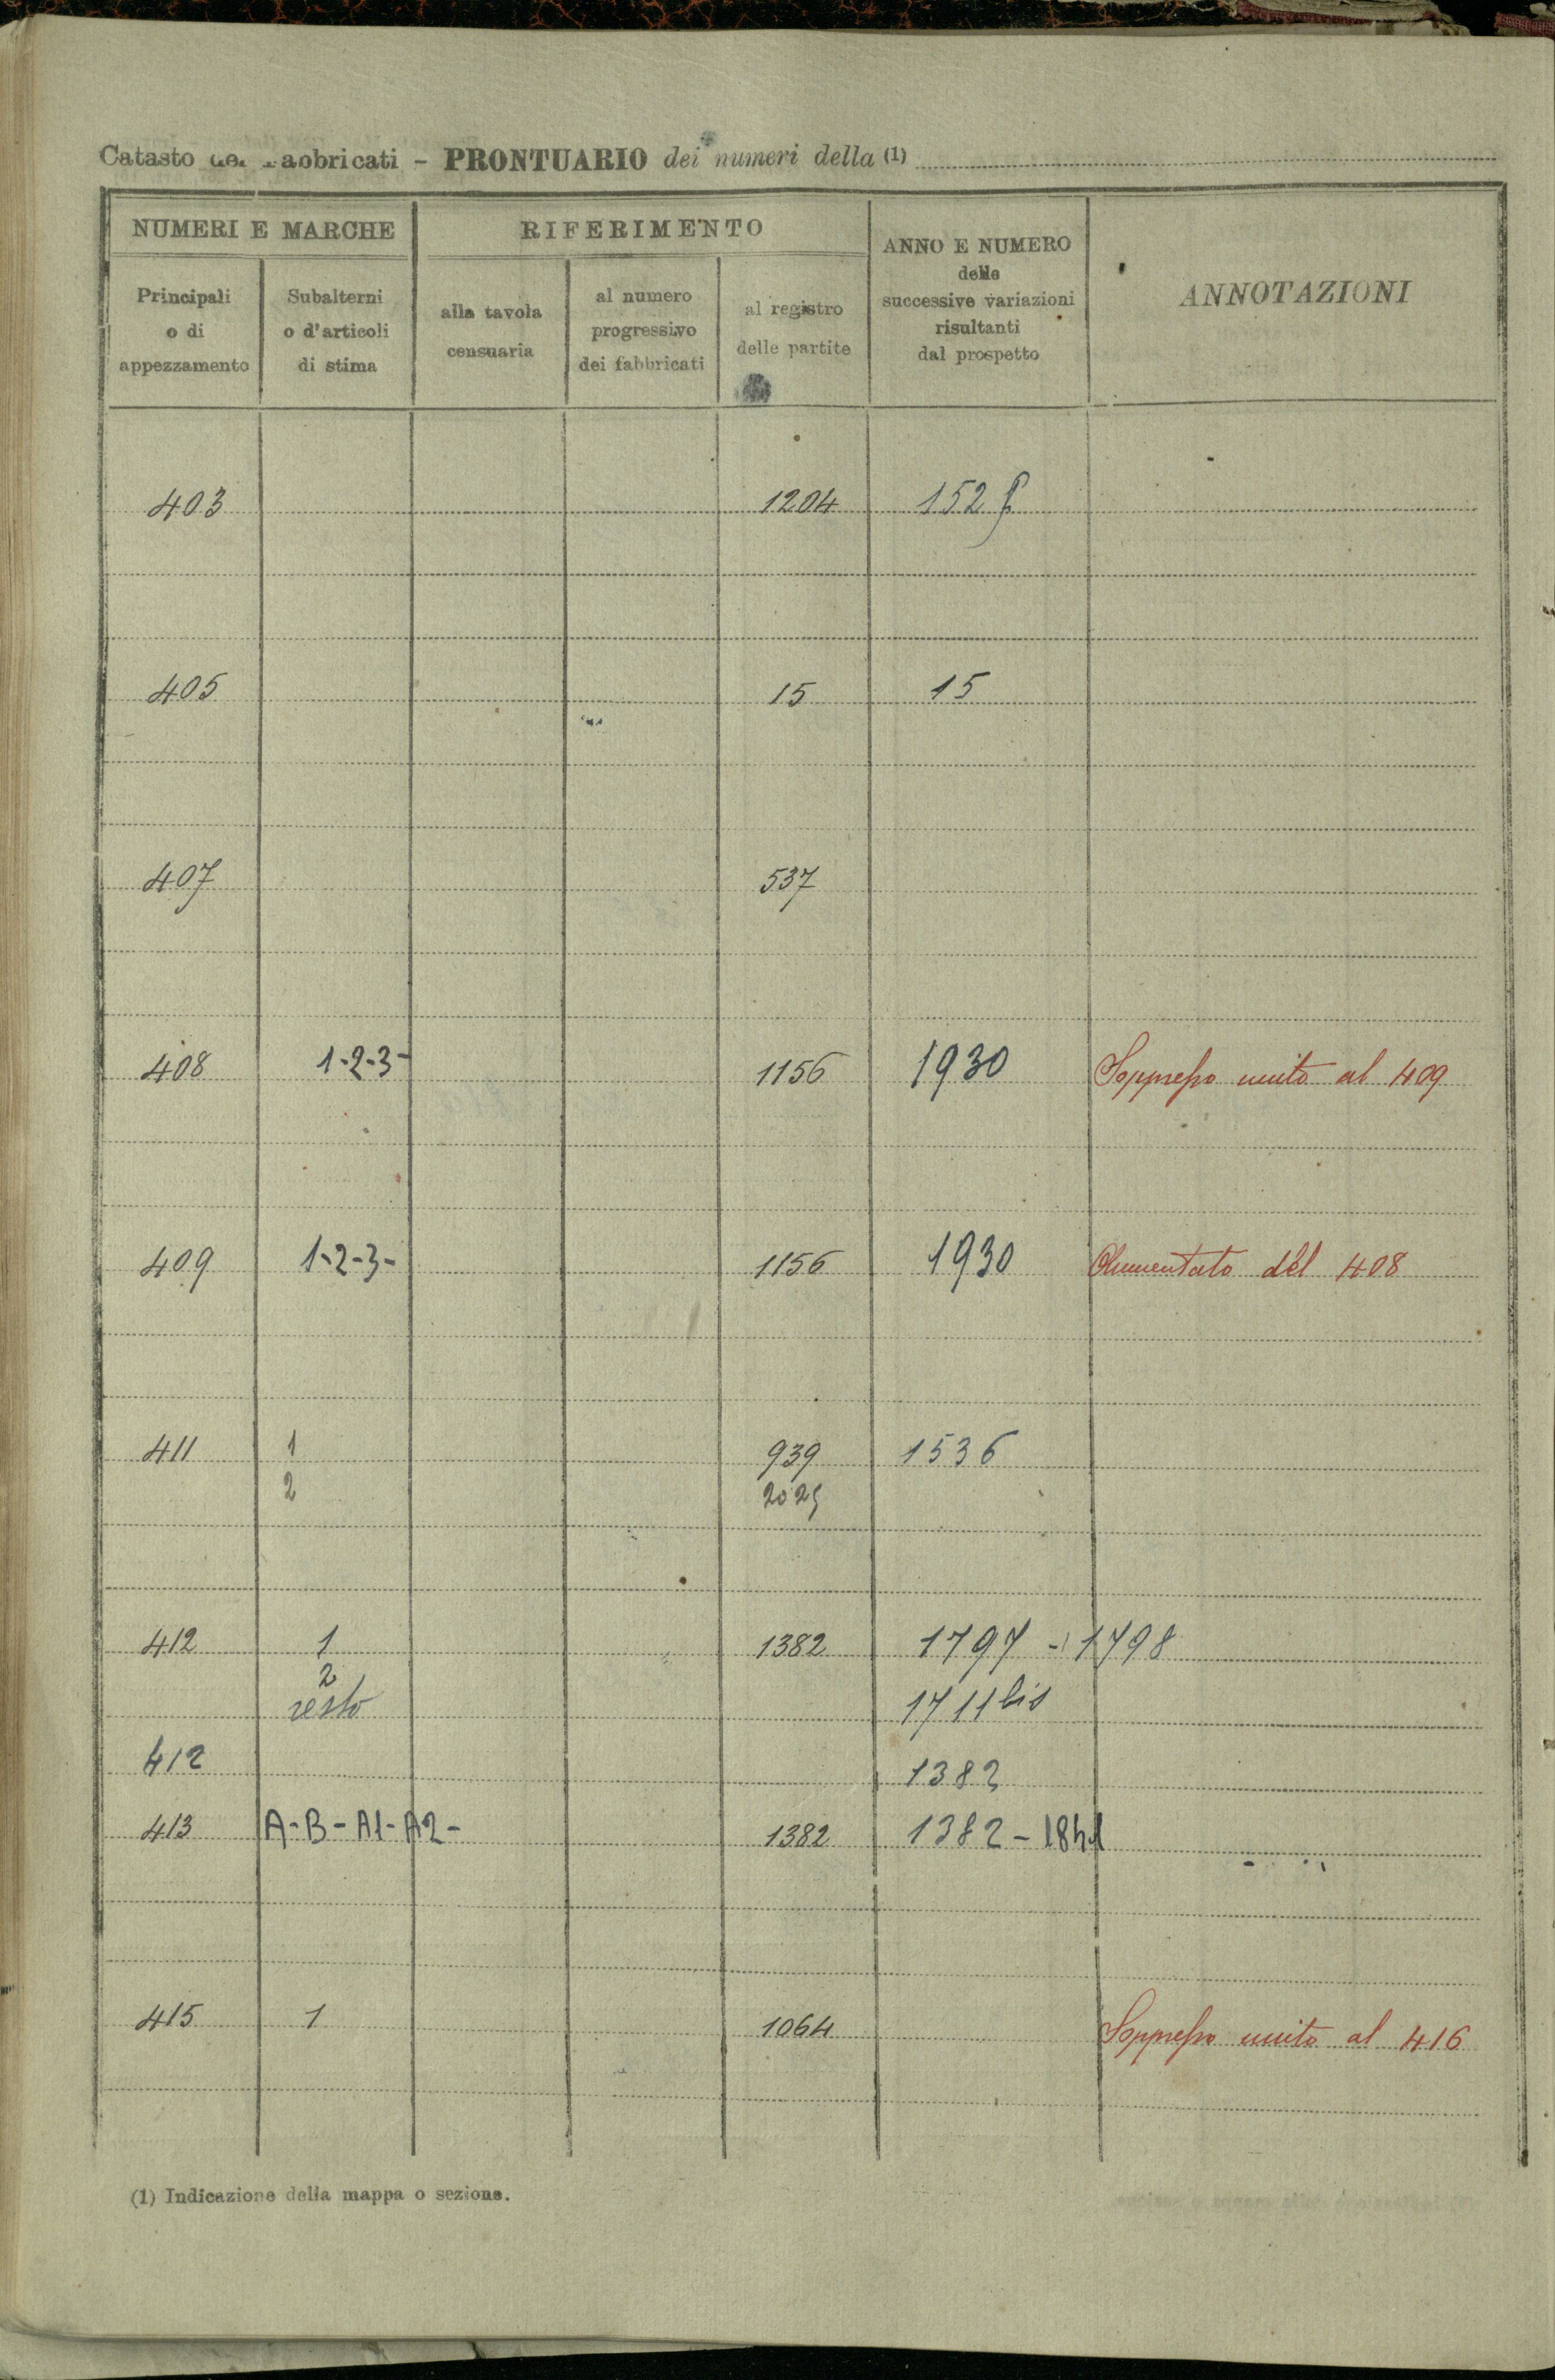 Catasto dei Fabbricati - PRONTUARIO dei numeri della (1)
NUMERI E MARCHE
RIFERIMENTO
ANNO E NUMERO
delle
successive variazioni
risultanti
dal prospetto
ANNOTAZIONI
Principali
o di
appezzamento
Subalterni
o d'articoli
di stima
alla tavola
censuaria
al numero
progressivo
dei fabbricati
al registro
delle partite
403 1204
405 15 15
407 537
408 1-2-3- 1156 1930 Soppresso unito al 409
409 1-2-3- 1156 1930 Aumentato del 408
411 1 939 1536
2 2025
412 1 1382 1797 - 1798
2
resto 1711 bis
412 1382
413 A-B-A1-A2- 1382 1382-1841
415 1 1064 Soppresso unito al 416
(1) Indicazione della mappa o sezione.